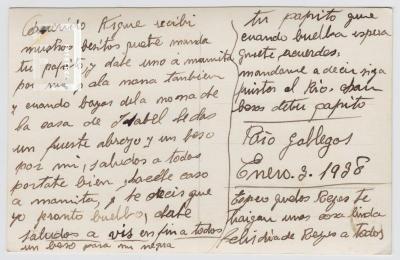 recibi
muchos besitos que te manda
tu papito, y dale uno á mamita
por mi, ala mama tanbien
y cuando bayas dela noma de
la casa de Isabel le das
un fuerte abrazo y un beso
por mi, saludos a todos
portate bien, hacele caso
a mamita, y te decis que
yo pronto buelbo, dale
saludos a vis en fin a todos
un beso para mi negra
tu papito que
cuando buelba espera
que te acuerdes,
mandame a decir, siga
puntos al Rio,
besos de tu papito
Rio Gallegos
Enero. 3. 1938
Espero que los Reyes te
traigan una cosa linda
feliz dia de Reyes a todos